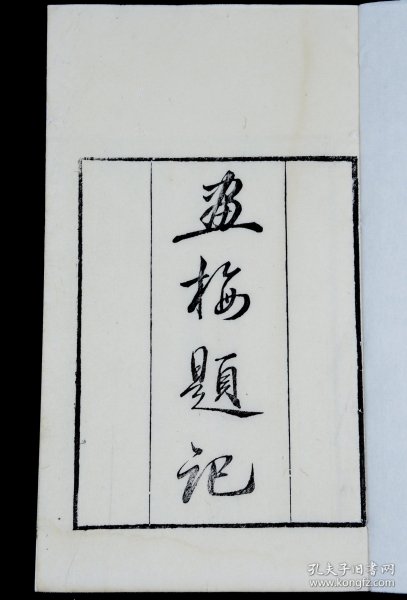 畫梅題記
孔夫子旧书网
www.kongfz.com